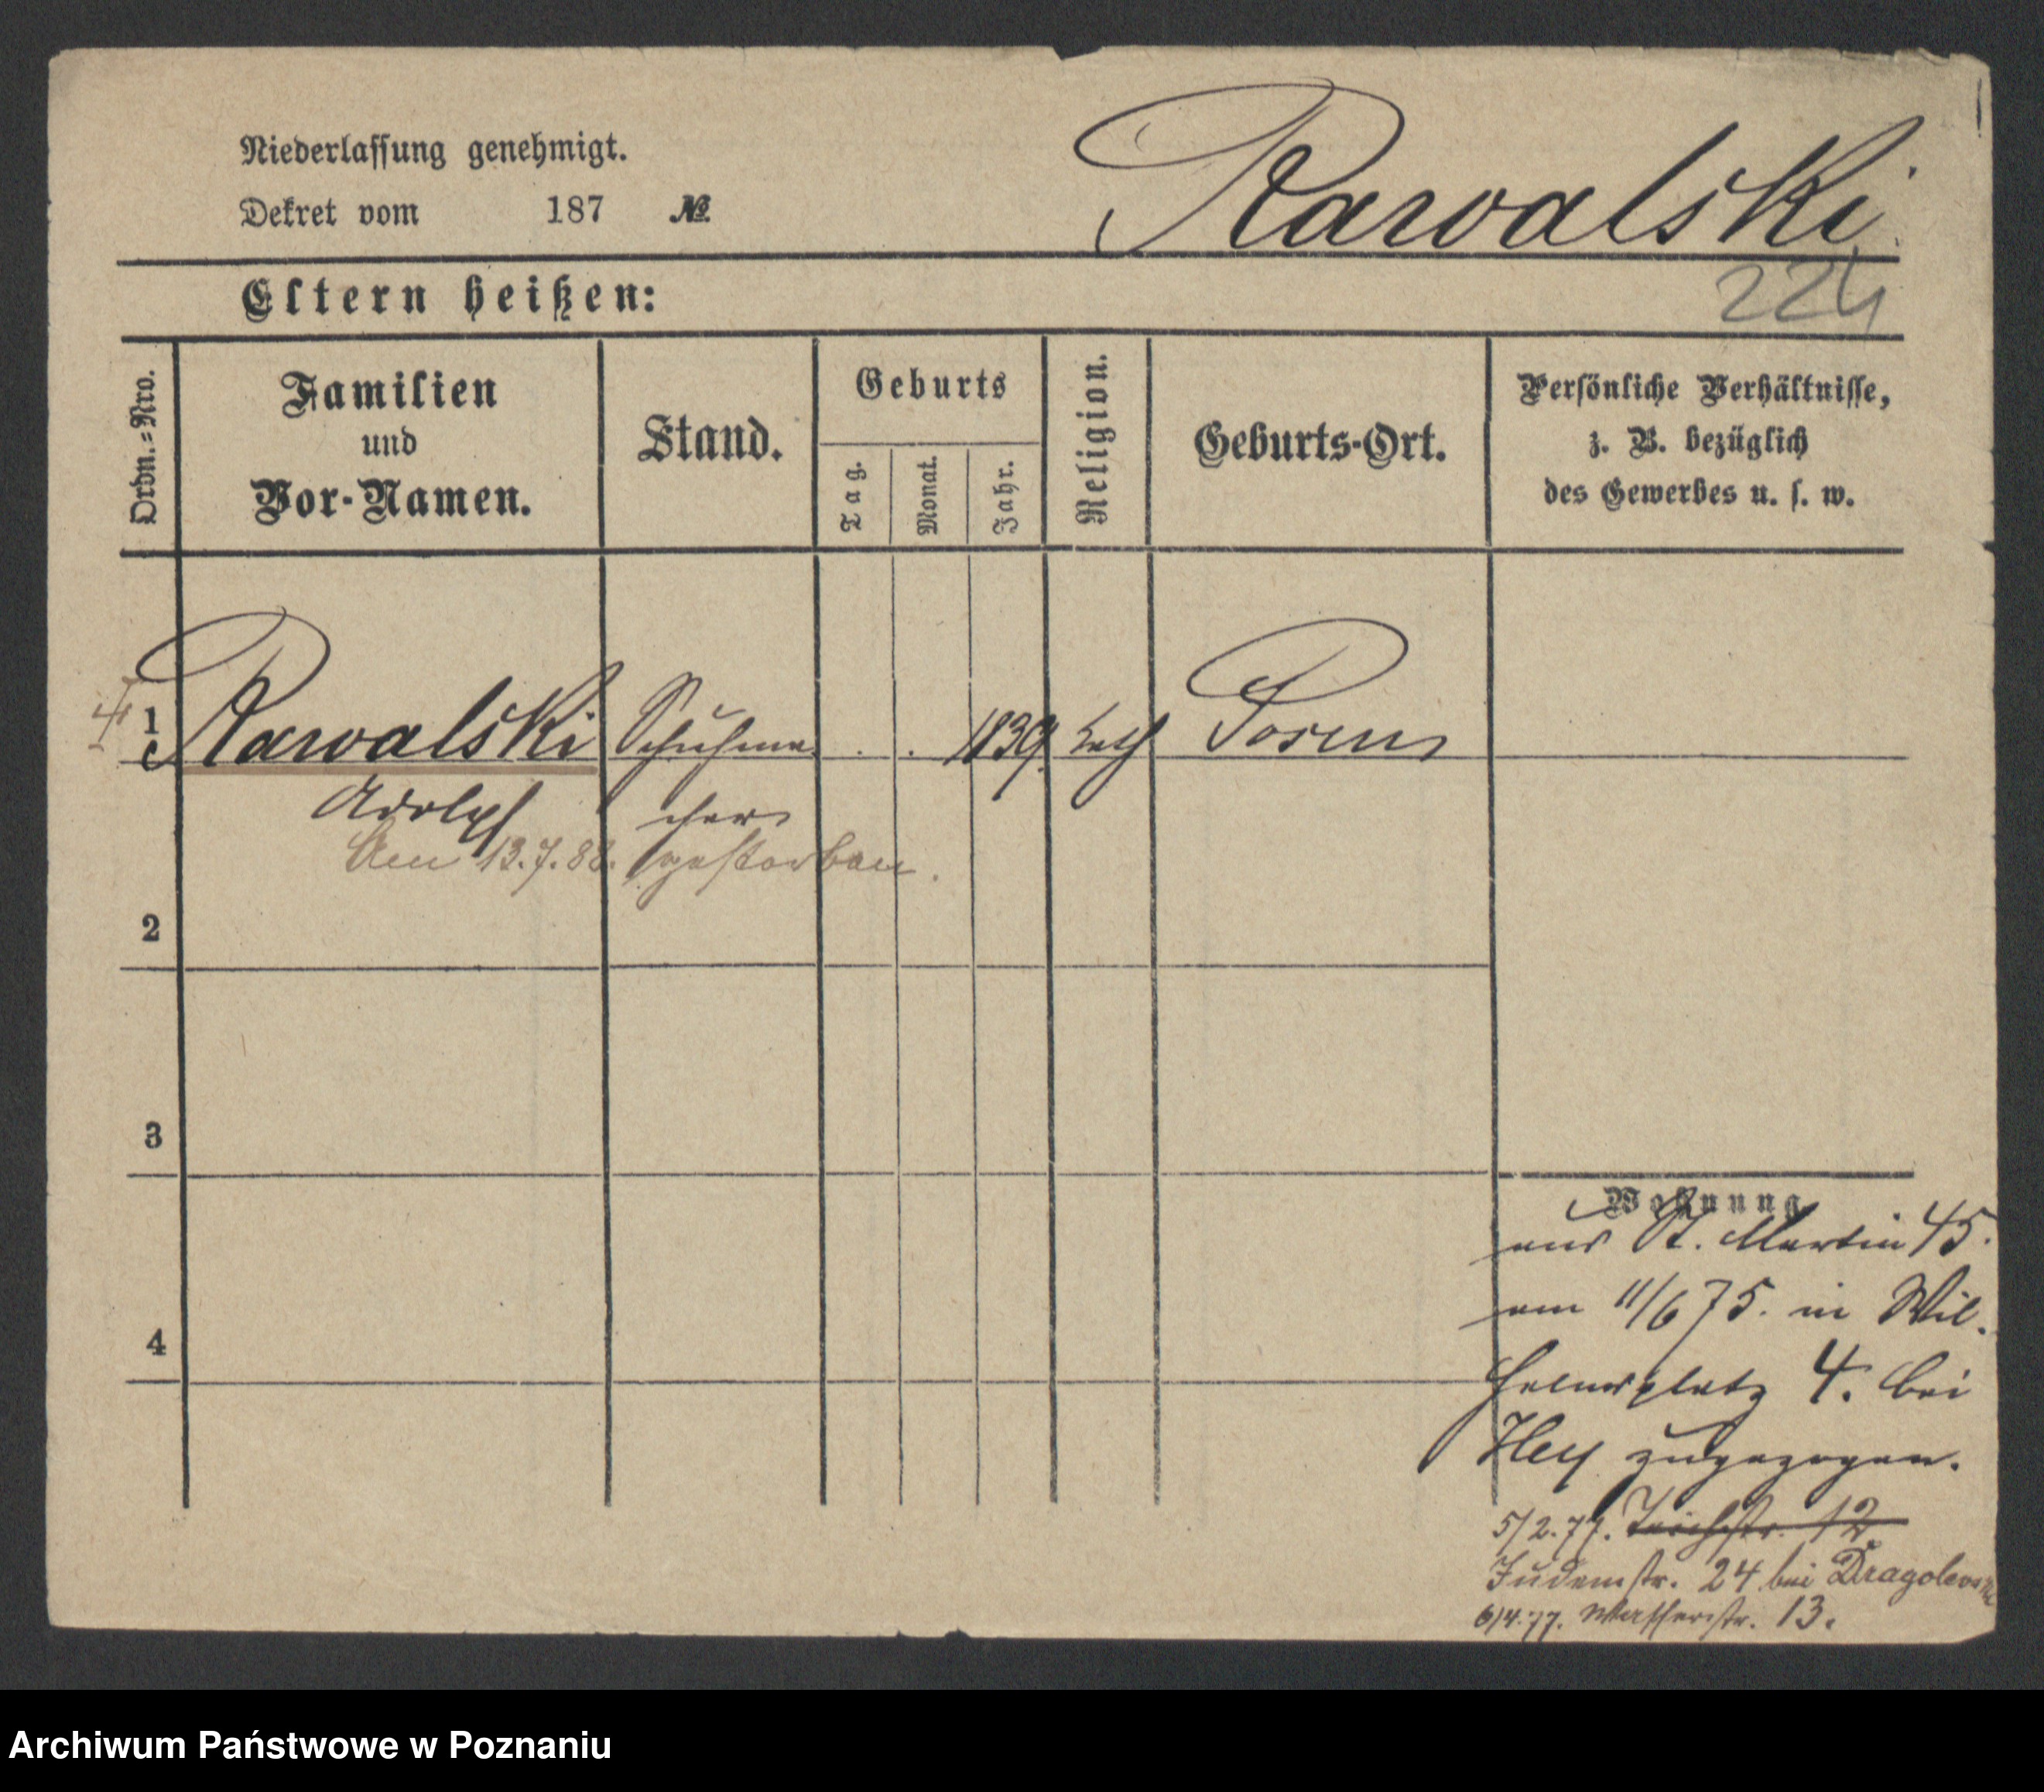 Niederlassung genehmigt.
Dekret vom 187 №
Rawalski
224
Eltern heißen:
Ordn.=Nro.
Familien
und
Vor-Namen.
Stand.
Geburts
Tag.
Monat.
Jahr.
Religion.
Geburts-Ort.
Persönliche Verhältnisse,
z. B. bezüglich
des Gewerbes u. s. w.
1 Rawalski Schuhma . . 1839. kath Posen
Adolph cher
Am 13.7.88. gestorben.
2
3
4
Wohnung
aus St. Martin 45.
am 11/6 75. in Wil-
helmsplatz 4. bei
Hey zugezogen.
5/2.77. Teichstr. 12
Judenstr. 24 bei
6/4.77. Wasserstr. 13.
Archiwum Państwowe w Poznaniu